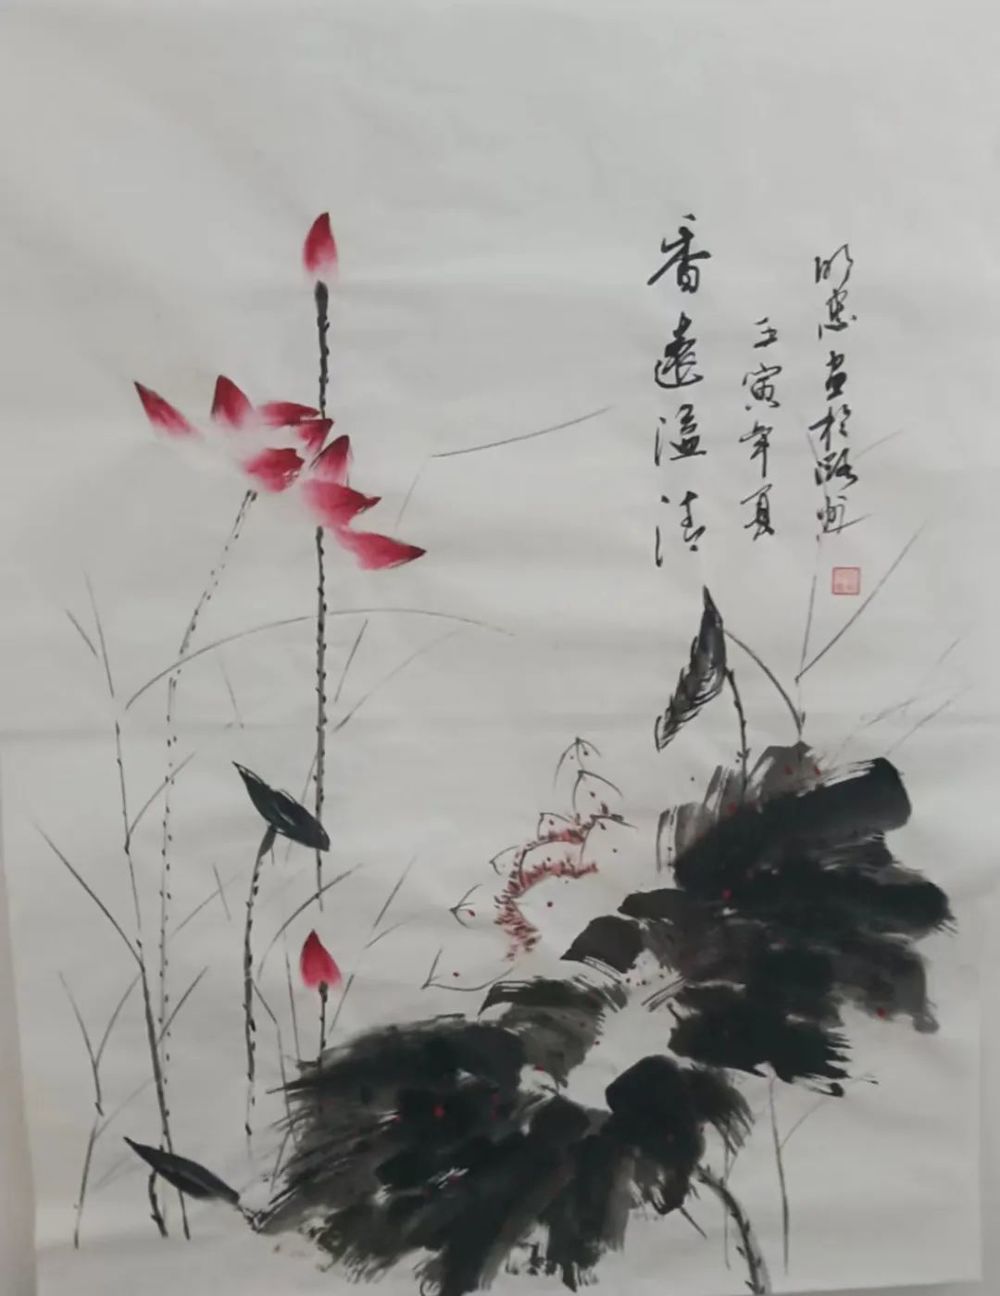 香遠溢清
壬寅年夏
明忠画於潞州